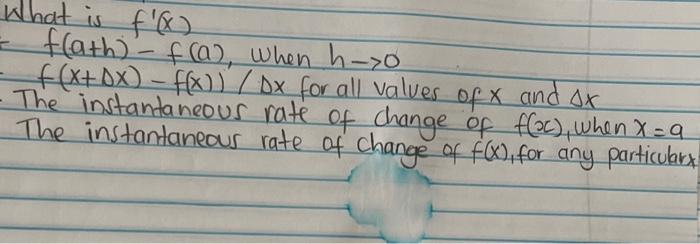 What is f'(x)
- f(a+h) - f(a), when h->0
- f(x+Δx) - f(x)) / Δx for all values of x and Δx
- The instantaneous rate of change of f(x), when x=a
The instantaneous rate of change of f(x), for any particular x